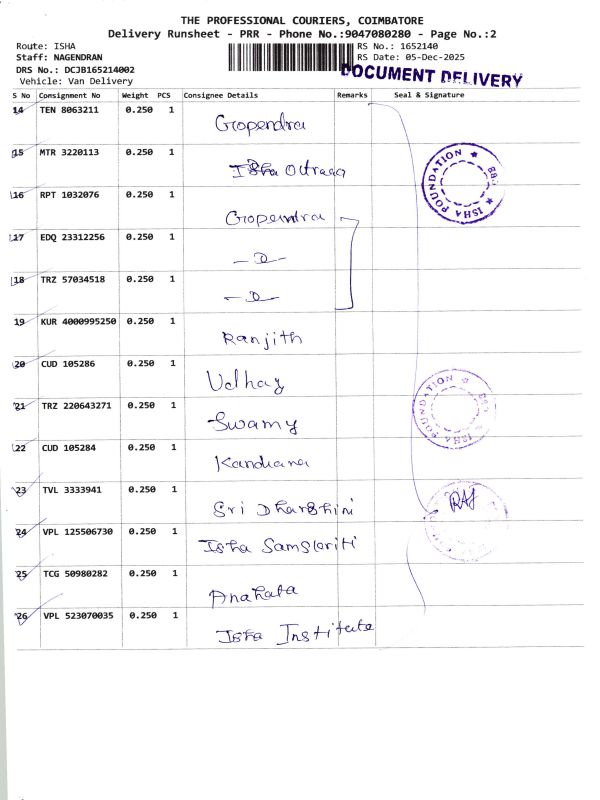 THE PROFESSIONAL COURIERS, COIMBATORE
Delivery Runsheet - PRR - Phone No.:9047080280 - Page No.:2
Route: ISHA
RS No.: 1652140
Staff: NAGENDRAN
RS Date: 05-Dec-2025
DRS No.: DCJB165214002
DOCUMENT DELIVERY
Vehicle: Van Delivery
S No Consignment No Weight PCS Consignee Details Remarks Seal & Signature
14 TEN 8063211 0.250 1 Gopendra
15 MTR 3220113 0.250 1 Isha
16 RPT 1032076 0.250 1 Gopendra
17 EDQ 23312256 0.250 1
18 TRZ 57034518 0.250 1
19 KUR 4000995250 0.250 1 Ranjith
20 CUD 105286 0.250 1 Udhay
21 TRZ 220643271 0.250 1 Swamy
22 CUD 105284 0.250 1
23 TVL 3333941 0.250 1 Sri Dharshini
24 VPL 125506730 0.250 1 Isha Samskriti
25 TCG 50980282 0.250 1 Anahata
26 VPL 523070035 0.250 1 Isha Institute
ISHA FOUNDATION
ISHA FOUNDATION
RAJ